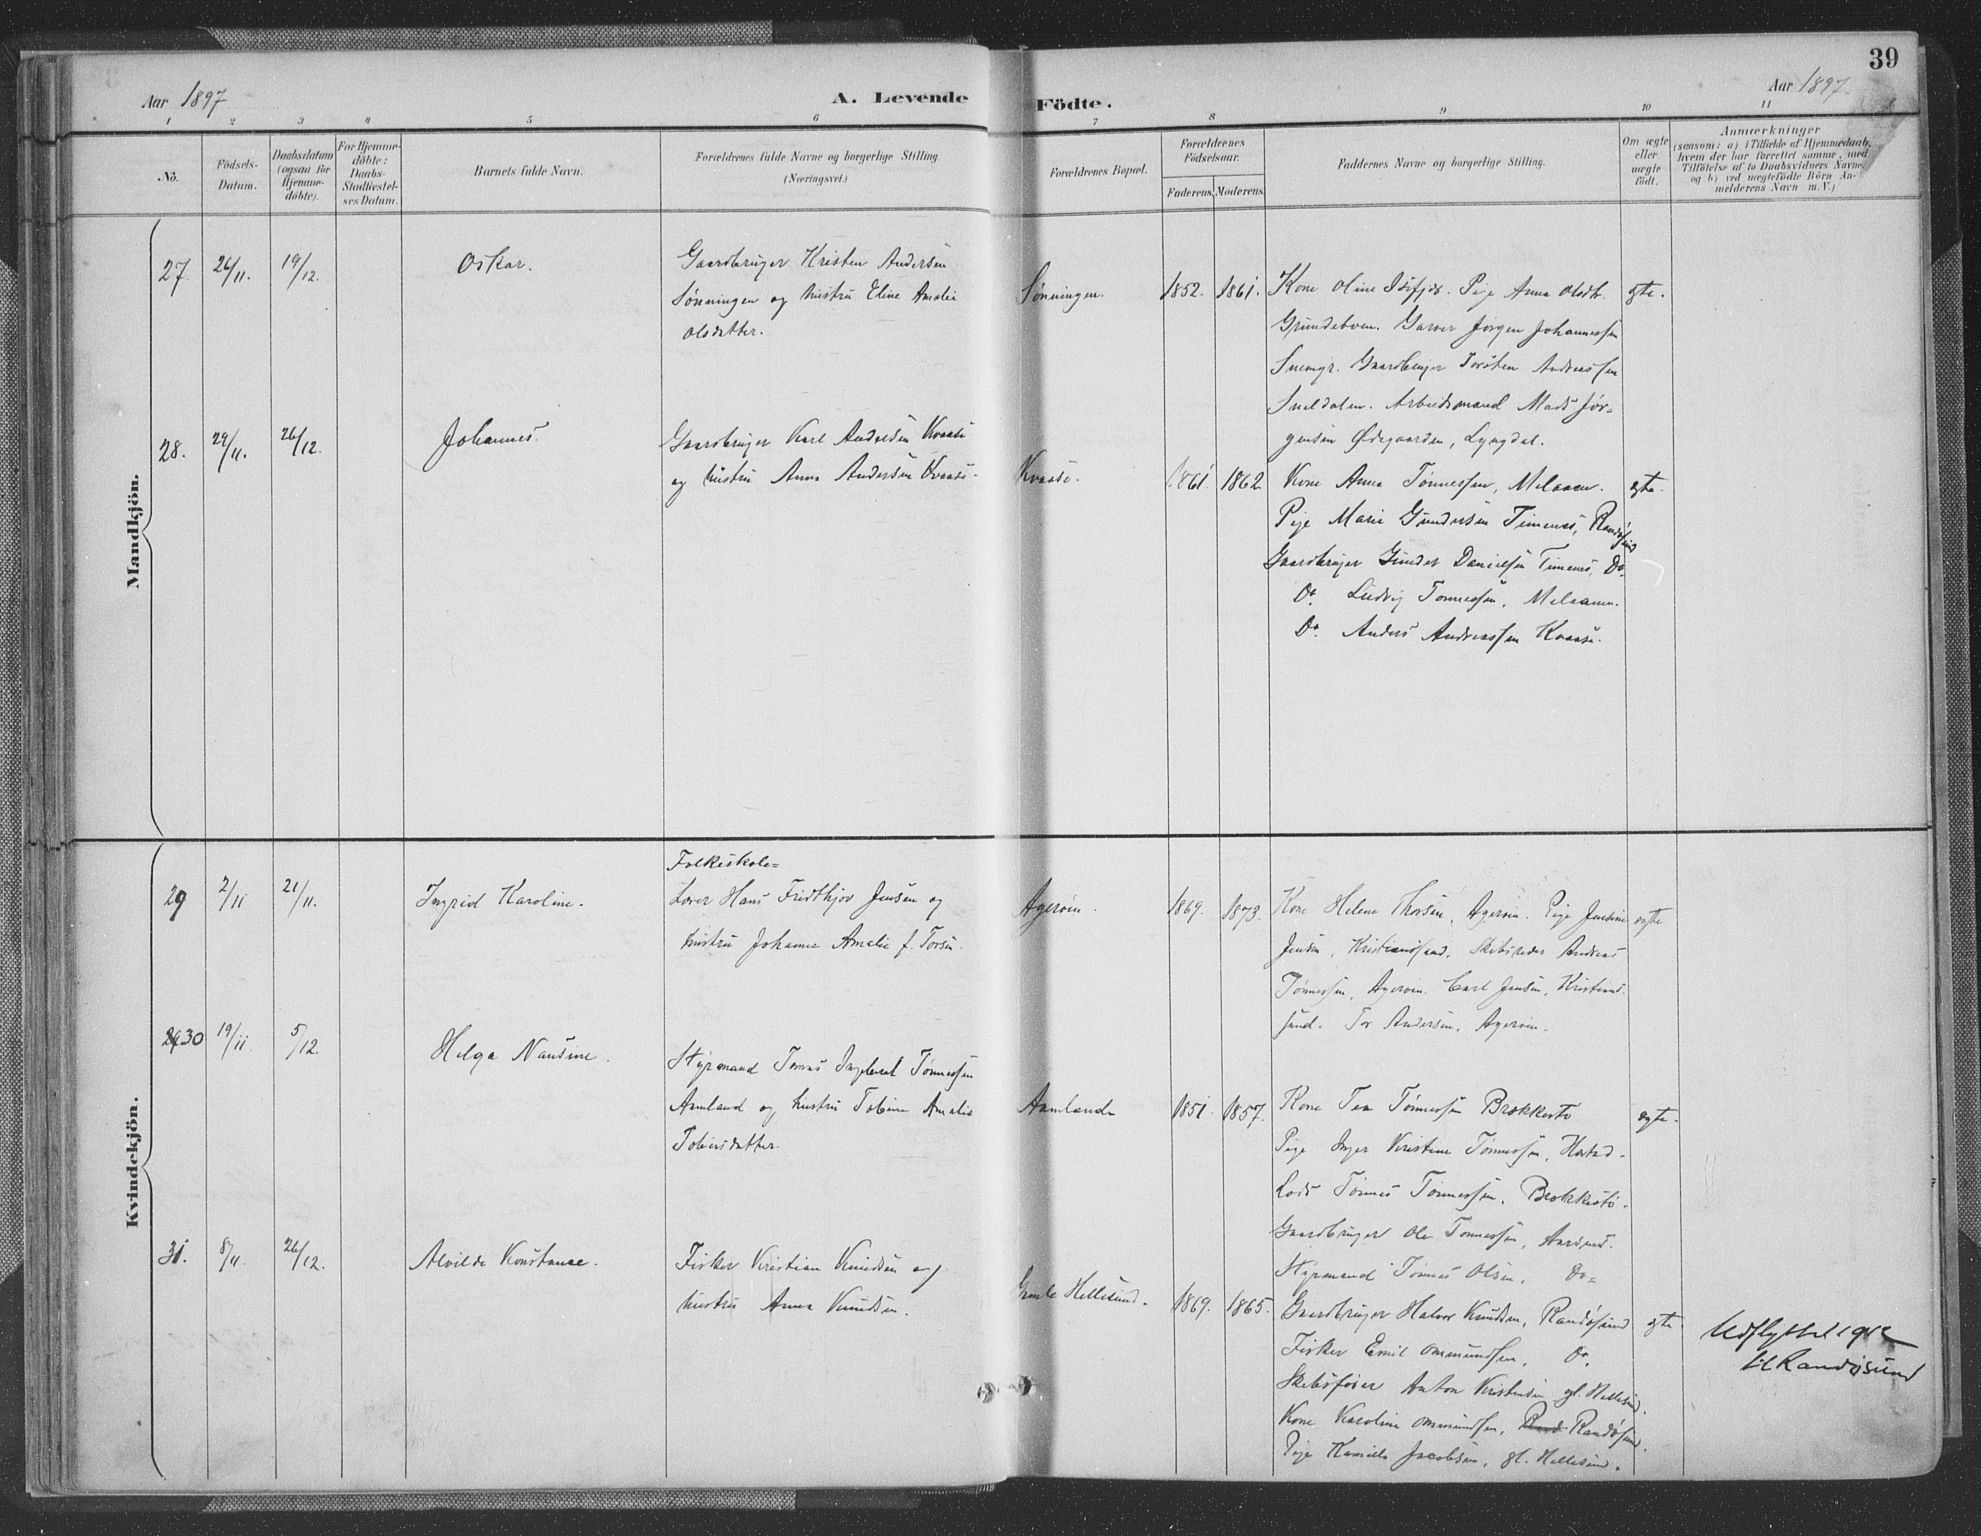 39
Aar 1897
A. Levende Födte.
Aar 1897.
1 2 3 4 5 6 7 8 9 10 11
No.
Födsels-
Datum.
Daabsdatum
(ogsaa for
Hjemme-
döbte).
For Hjemme-
döbte:
Daabs-
Stadfæstel-
ses Datum.
Barnets fulde Navn.
Forældrenes fulde Navne og borgerlige Stilling
(Næringsvei.)
Forældrenes Bopæl.
Forældrenes
Födselsaar.
Faderens. Moderens.
Faddernes Navne og borgerlige Stilling.
Om ægte
eller
uægte
födt.
Anmærkninger
(saasom: a) i Tilfælde af Hjemmedaab,
hvem der har forrettet samme, med
Tilföielse af to Daabsvidners Navne,
og b) ved uægtefödte Börn An-
melderens Navn m. V.)
Mandkjön.
27. 26/11. 19/12.
Oskar.
Gaardbruger Kristen Andersen
Sønningen og hustru Eline Amalie
Olsdatter.
Sønningen.
1852. 1861.
Kone Oline Pige Anna Olsdtr.
Garver Jørgen Johannessen
Gaardbruger Torsten Andreassen
Arbeidsmand Mads Jør-
gensen Ødegaarden, Lyngdal.
egte.
28. 29/11. 26/12.
Johannes.
Gaardbruger Karl Andersen Kvaase
og hustru Anna Andersen Kvaase.
Kvaase.
1861. 1862
Kone Anna Tønnessen, Melaaen.
Pige Marie Gundersen Timenes, Randøsund
Gaardbruger Gunder Danielsen Timenes, Do.
Do. Ludvig Tønnessen, Melaaen.
Do. Anders Andreassen Kvaase.
egte.
Kvindekjön.
29 2/11 21/11.
Ingrid Karoline.
Folkeskole-
Lærer Hans Fridthjov Jensen og
hustru Johanne Amalie f. Torsen.
Agerøen.
1869. 1873.
Kone Helene Thorsen, Agerøen. Pige Jensine
Jensen, Kristianssand. Skibsreder Andreas
Tønnessen, Agerøen. Carl Jensen, Kristians-
sand. Tor Andersen, Agerøen.
egte
30 19/11. 5/12.
Helga Nansine.
Styrmand Tomas Ingebret Tønnessen
Aamland og hustru Tobine Amalie
Tobiasdatter.
Aamland
1851. 1857.
Kone Tea Tønnessen Brækkestø
Pige Inger Kristine Tønnessen,
Lods Tønnes Tønnessen, Brækkestø.
Gaardbruger Ole Tønnessen,
Styrmand Tønnes Olsen, Do.
egte.
31. 8/11. 26/12.
Alvilde Konstance.
Fisker Kristian Knudsen og
hustru Anna Knudsen.
Gamle Hellesund.
1869. 1865.
Gaardbruger Halvor Knudsen, Randøsund
Fisker Emil Ommundsen, Do.
Skibsfører Anton Kristensen gl. Hellesund.
Kone Karoline Ommundsen, Randøsund.
Pige Kamilla Jacobsen, gl. Hellesund.
egte
Udflyttet 1912
til Randøsund